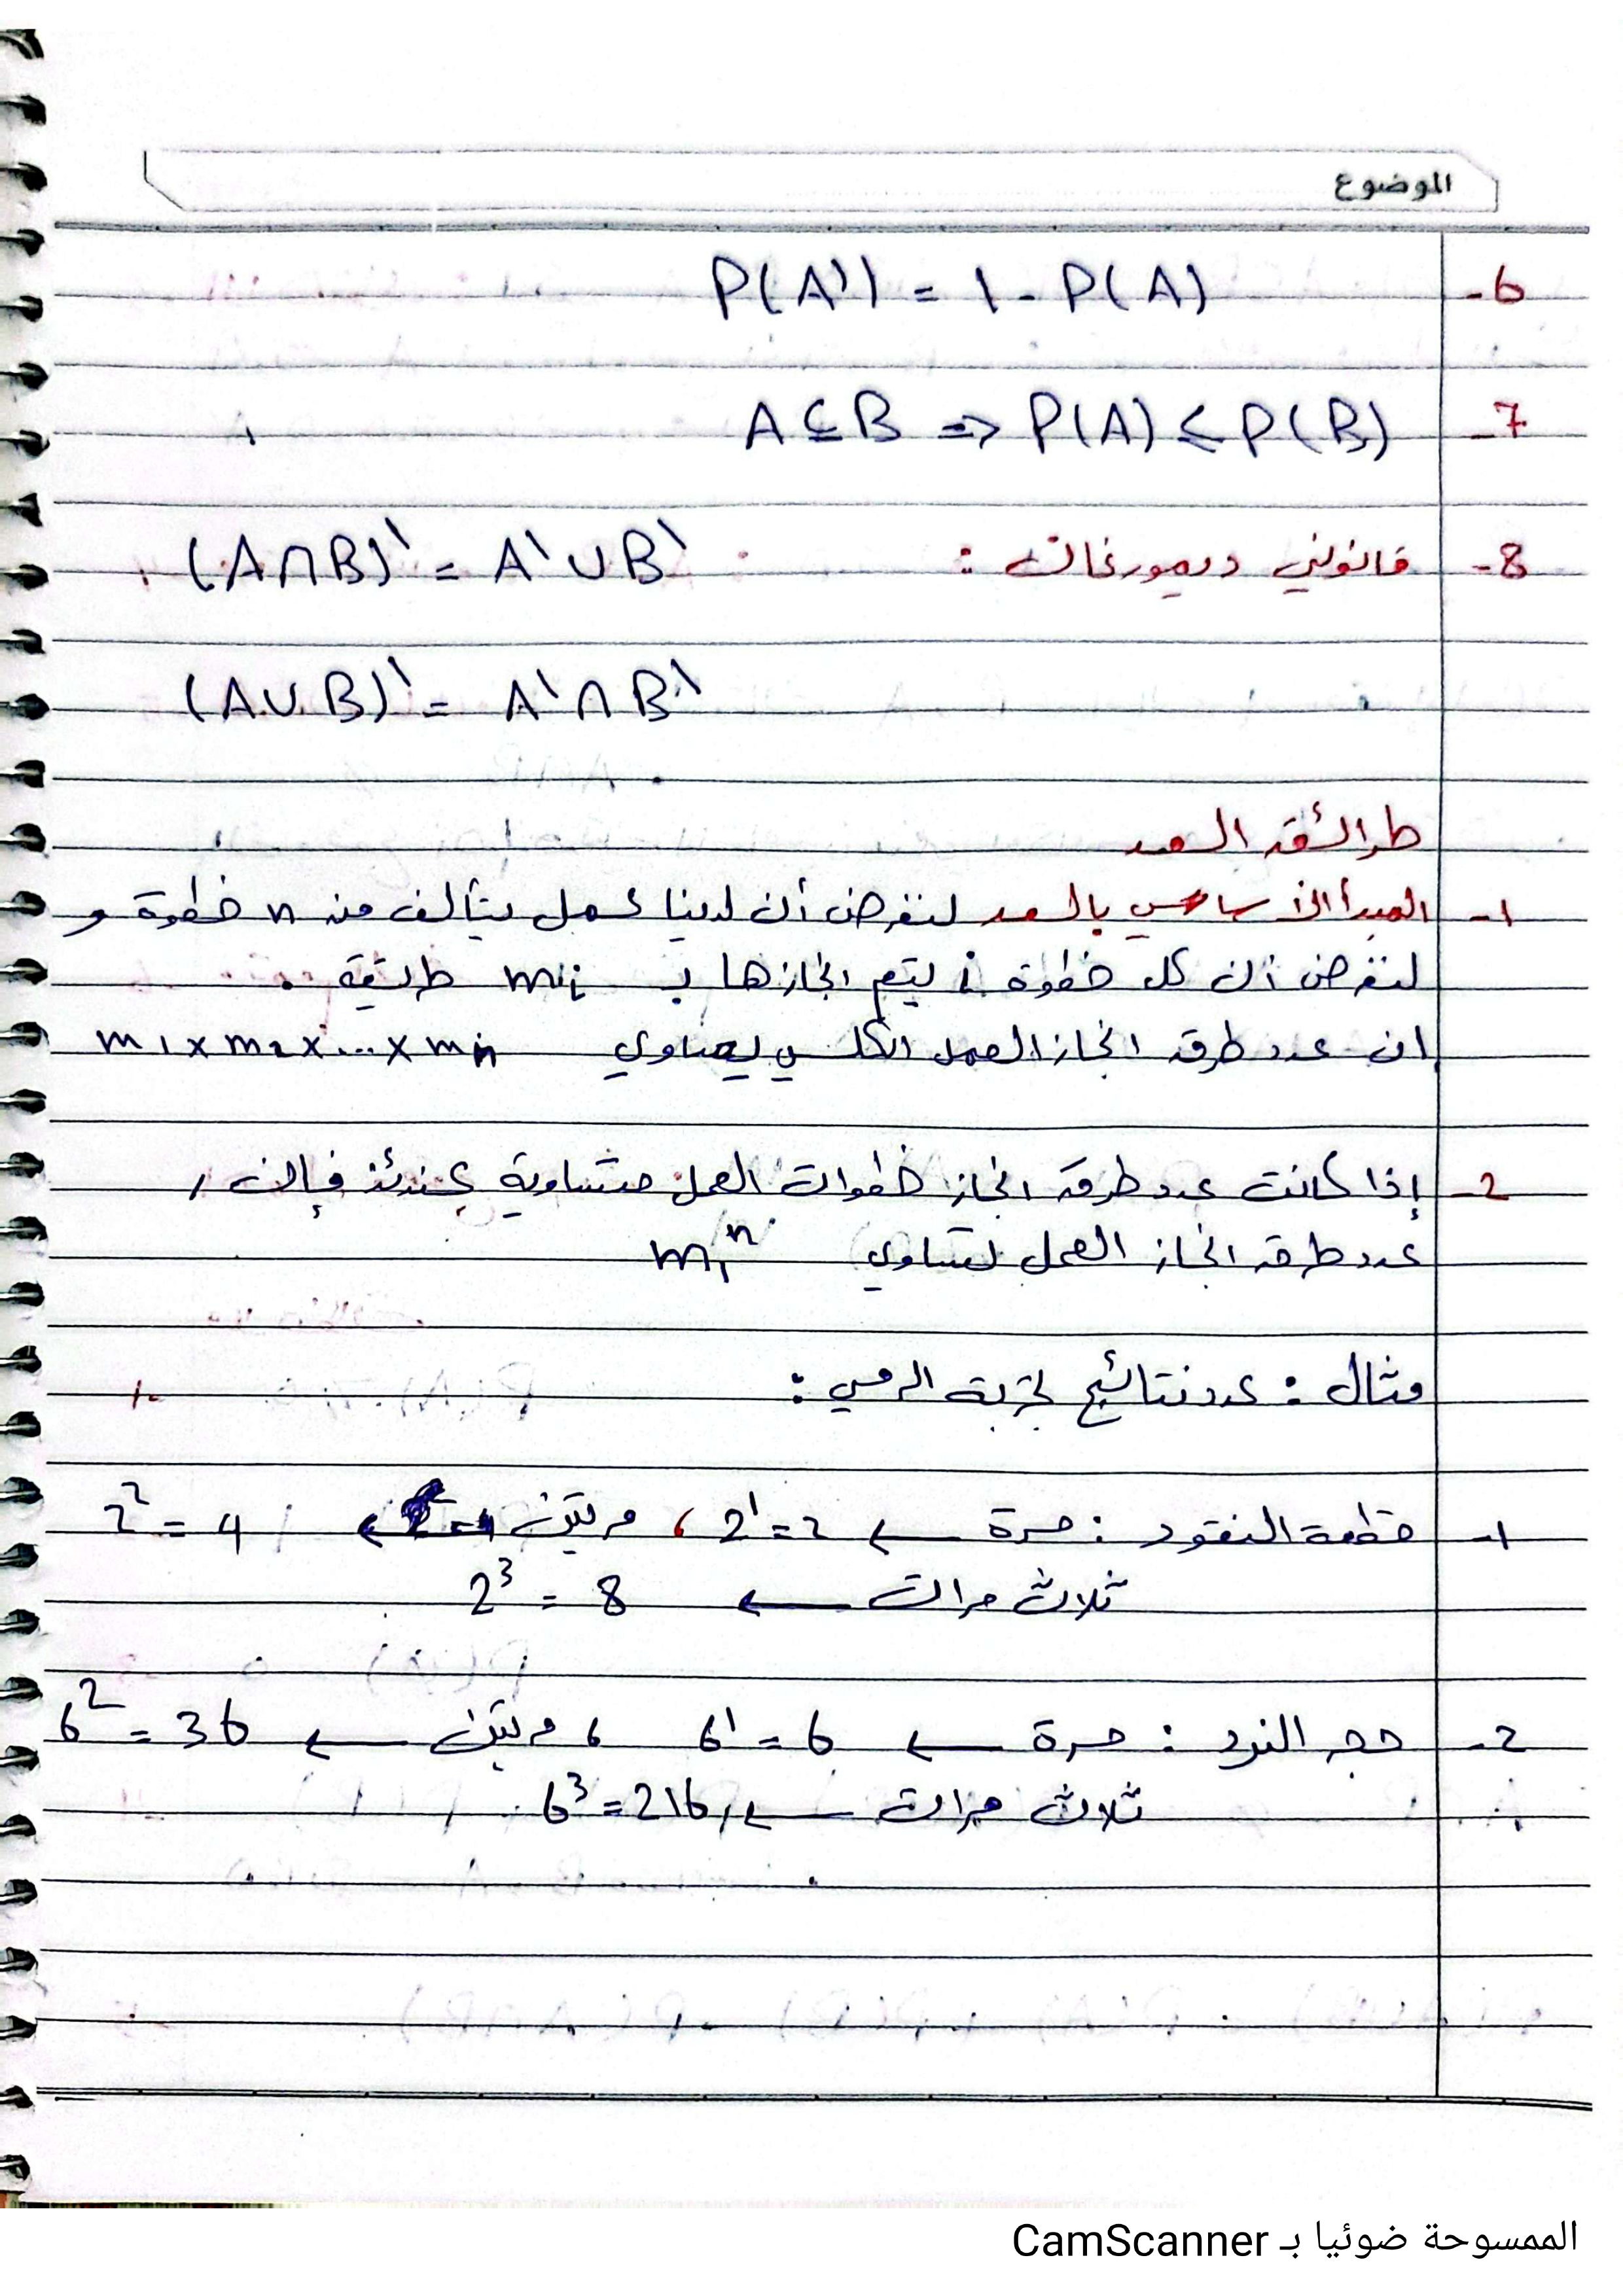 الموضوع
6- P(A') = 1 - P(A)
7- A ⊆ B ⇒ P(A) ≤ P(B)
8- قانوني ديمورغان : (A∩B)' = A'∪B'
(A∪B)' = A'∩B'
طرائق العد
1- المبدأ الأساسي بالعد لنفرض أن لدينا عمل يتألف من n خطوة و
لنفرض أن كل خطوة i يتم انجازها بـ mi طريقة .
ان عدد طرق انجاز العمل الكلي يساوي m1 x m2 x ... x mn
2- إذا كانت عدد طرق انجاز خطوات العمل متساوية عندئذ فإن
عدد طرق انجاز العمل يساوي m1ⁿ
مثال : عدد نتائج تجربة الرمي :
1- قطعة النقود : مرة ← 2¹ = 2 ، مرتين ← 2² = 4
ثلاث مرات ← 2³ = 8
2- حجر النرد : مرة ← 6¹ = 6 ، مرتين ← 6² = 36
ثلاث مرات ← 6³ = 216
الممسوحة ضوئيا بـ CamScanner